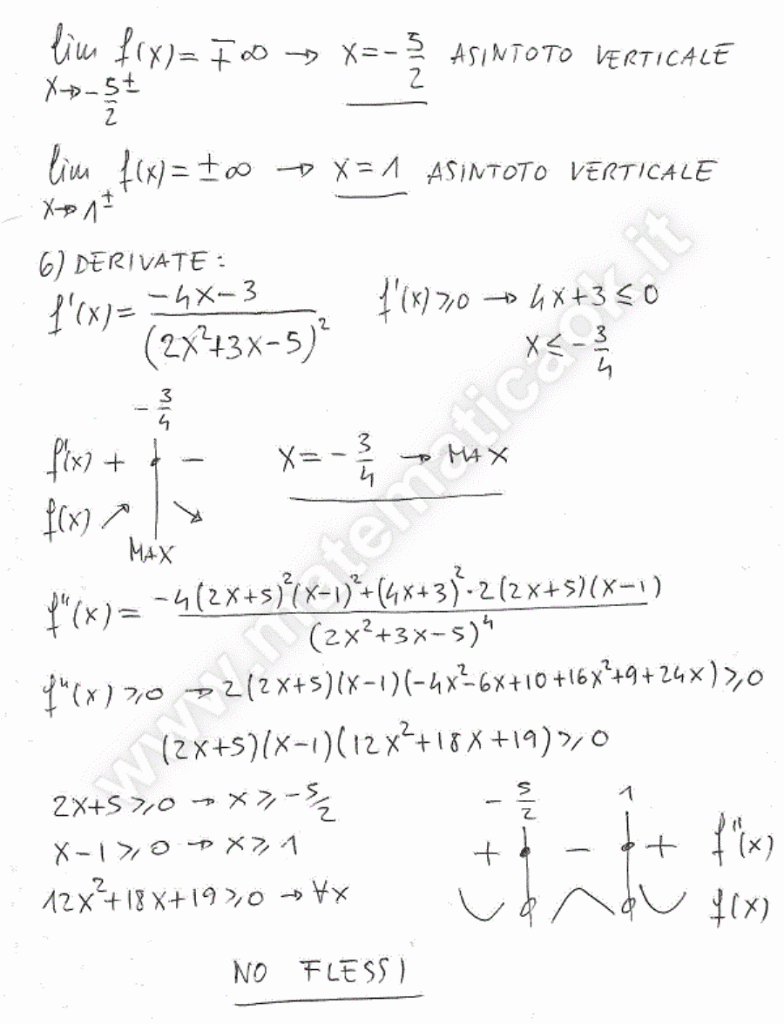 lim f(x) = ∓∞ → x = -5/2 ASINTOTO VERTICALE
x→-5/2±
lim f(x) = ±∞ → x = 1 ASINTOTO VERTICALE
x→1±
6) DERIVATE:
f'(x) = (-4x-3)/(2x²+3x-5)² f'(x) ≥ 0 → 4x+3 ≤ 0
x ≤ -3/4
-3/4
f'(x) + - x = -3/4 → MAX
f(x) ↗ ↘
MAX
f"(x) = (-4(2x+5)²(x-1)²+(4x+3)²·2(2x+5)(x-1))/(2x²+3x-5)⁴
f"(x) ≥ 0 → 2(2x+5)(x-1)(-4x²-6x+10+16x²+9+24x) ≥ 0
(2x+5)(x-1)(12x²+18x+19) ≥ 0
2x+5 ≥ 0 → x ≥ -5/2
x-1 ≥ 0 → x ≥ 1
12x²+18x+19 ≥ 0 → ∀x
-5/2 1
+ - + f"(x)
f(x)
NO FLESSI
www.matematicaok.it